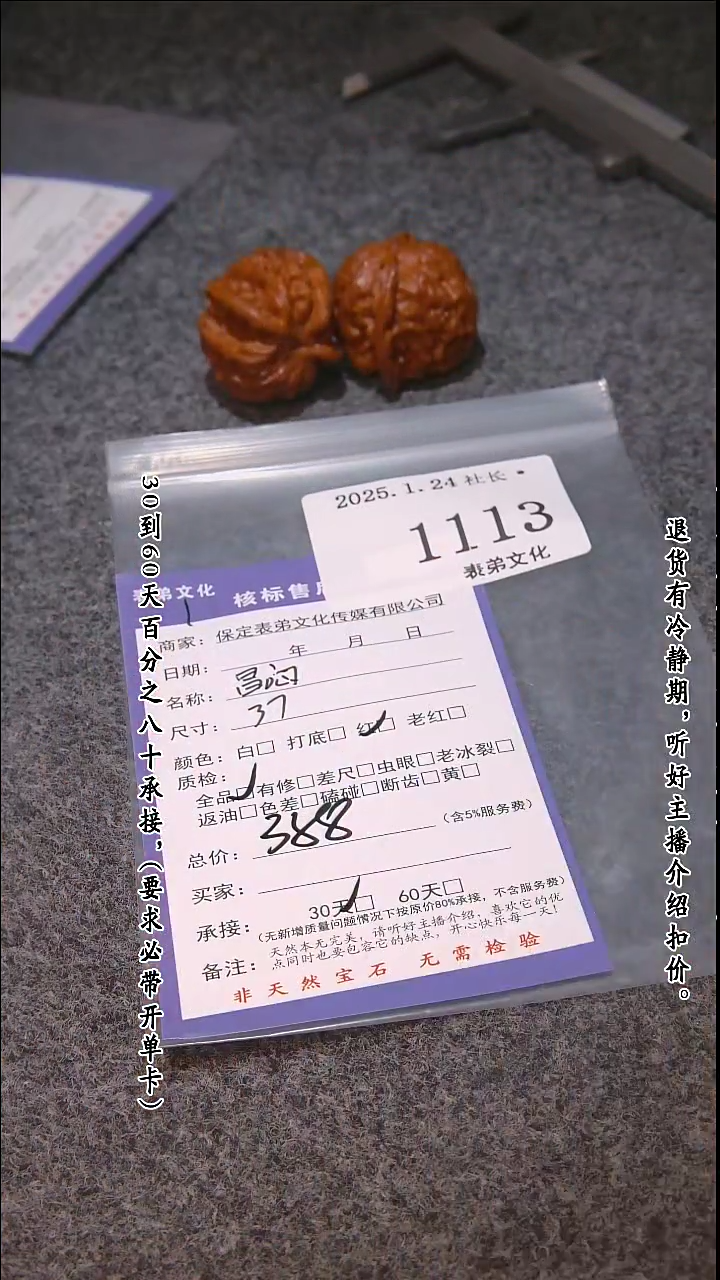 2025.1.24 社长
1113
表弟文化
表弟文化 核标售
商家：保定表弟文化传媒有限公司
日期： 年 月 日
名称：昌闷
尺寸：37
颜色：白□ 打底□ 红□ 老红□
质检：
全品□有修□差尺□虫眼□老冰裂□
返油□色差□磕碰□断齿□黄□
总价：388（含5%服务费）
买家：
承接：30天□ 60天□
（无新增质量问题情况下按原价80%承接，不含服务费）
备注：天然本无完美，请听好主播介绍，喜欢它的优
点同时也要包容它的缺点，开心快乐每一天！
非天然宝石 无需检验
30到60天百分之八十承接，（要求必带开单卡）
退货有冷静期，听好主播介绍扣价。